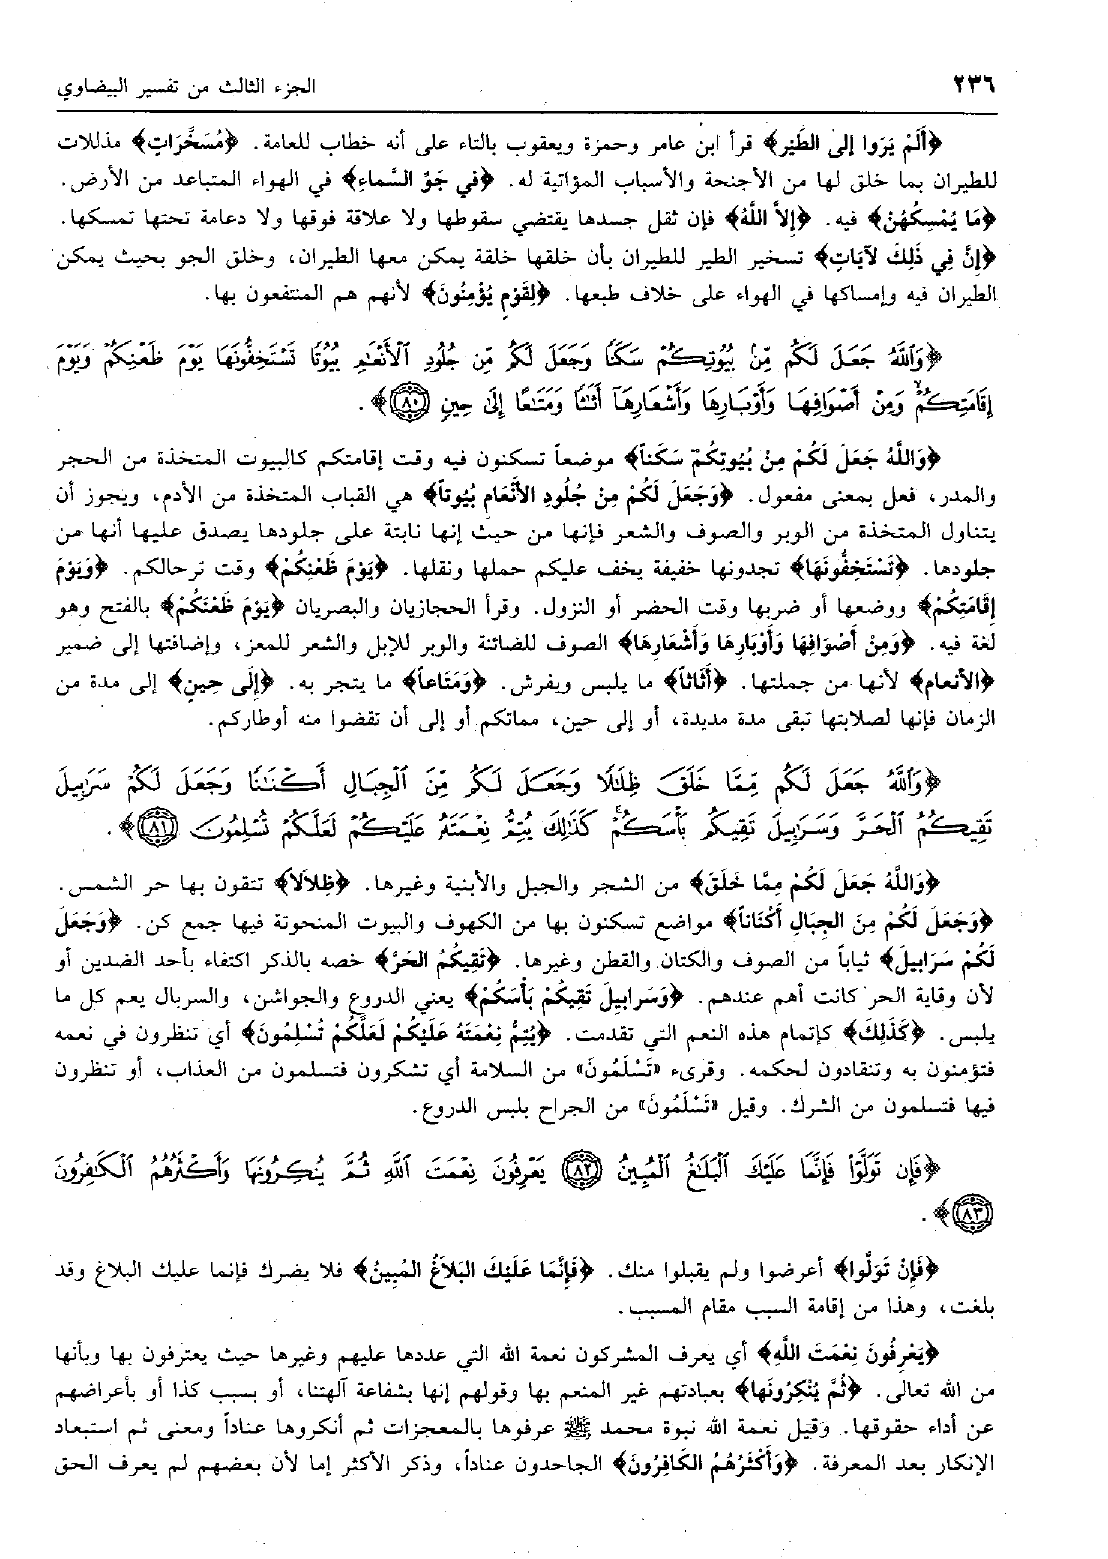 ٢٣٦ الجزء الثالث من تفسير البيضاوي
﴿أَلَمْ يَرَوا إلى الطَّيْرِ﴾ قرأ ابن عامر وحمزة ويعقوب بالتاء على أنه خطاب للعامة. ﴿مُسَخَّرَاتٍ﴾ مذللات
للطيران بما خلق لها من الأجنحة والأسباب المؤاتية له. ﴿في جَوِّ السَّماءِ﴾ في الهواء المتباعد من الأرض.
﴿مَا يُمْسِكُهُنَّ﴾ فيه. ﴿إلاَّ اللَّهُ﴾ فإن ثقل جسدها يقتضي سقوطها ولا علاقة فوقها ولا دعامة تحتها تمسكها.
﴿إنَّ فِي ذَلِكَ لآيَاتٍ﴾ تسخير الطير للطيران بأن خلقها خلقة يمكن معها الطيران، وخلق الجو بحيث يمكن
الطيران فيه وإمساكها في الهواء على خلاف طبعها. ﴿لِقَوْمٍ يُؤْمِنُونَ﴾ لأنهم هم المنتفعون بها.
﴿وَٱللَّهُ جَعَلَ لَكُم مِّنۢ بُيُوتِكُمْ سَكَنًا وَجَعَلَ لَكُم مِّن جُلُودِ ٱلْأَنْعَٰمِ بُيُوتًا تَسْتَخِفُّونَهَا يَوْمَ ظَعْنِكُمْ وَيَوْمَ
إِقَامَتِكُمْ وَمِنْ أَصْوَافِهَا وَأَوْبَارِهَا وَأَشْعَارِهَآ أَثَٰثًا وَمَتَٰعًا إِلَىٰ حِينٍ ٨٠﴾.
﴿وَاللَّهُ جَعَلَ لَكُمْ مِنْ بُيُوتِكُمْ سَكَناً﴾ موضعاً تسكنون فيه وقت إقامتكم كالبيوت المتخذة من الحجر
والمدر، فعل بمعنى مفعول. ﴿وَجَعَلَ لَكُمْ مِنْ جُلُودِ الأَنْعَامِ بُيُوتاً﴾ هي القباب المتخذة من الأدم، ويجوز أن
يتناول المتخذة من الوبر والصوف والشعر فإنها من حيث إنها نابتة على جلودها يصدق عليها أنها من
جلودها. ﴿تَسْتَخِفُّونَهَا﴾ تجدونها خفيفة يخف عليكم حملها ونقلها. ﴿يَوْمَ ظَعْنِكُمْ﴾ وقت ترحالكم. ﴿وَيَوْمَ
إِقَامَتِكُمْ﴾ ووضعها أو ضربها وقت الحضر أو النزول. وقرأ الحجازيان والبصريان ﴿يَوْمَ ظَعَنِكُمْ﴾ بالفتح وهو
لغة فيه. ﴿وَمِنْ أَصْوَافِهَا وَأَوْبَارِهَا وَأَشْعَارِهَا﴾ الصوف للضائنة والوبر للإبل والشعر للمعز، وإضافتها إلى ضمير
﴿الأَنعام﴾ لأنها من جملتها. ﴿أَثَاثاً﴾ ما يلبس ويفرش. ﴿وَمَتَاعاً﴾ ما يتجر به. ﴿إلَى حِينٍ﴾ إلى مدة من
الزمان فإنها لصلابتها تبقى مدة مديدة، أو إلى حين، مماتكم أو إلى أن تقضوا منه أوطاركم.
﴿وَٱللَّهُ جَعَلَ لَكُم مِّمَّا خَلَقَ ظِلَٰلًا وَجَعَلَ لَكُم مِّنَ ٱلْجِبَالِ أَكْنَٰنًا وَجَعَلَ لَكُمْ سَرَٰبِيلَ
تَقِيكُمُ ٱلْحَرَّ وَسَرَٰبِيلَ تَقِيكُم بَأْسَكُمْ كَذَٰلِكَ يُتِمُّ نِعْمَتَهُۥ عَلَيْكُمْ لَعَلَّكُمْ تُسْلِمُونَ ٨١﴾.
﴿وَاللَّهُ جَعَلَ لَكُمْ مِمَّا خَلَقَ﴾ من الشجر والجبل والأبنية وغيرها. ﴿ظِلاَلاً﴾ تتقون بها حر الشمس.
﴿وَجَعَلَ لَكُمْ مِنَ الجِبَالِ أَكْنَاناً﴾ مواضع تسكنون بها من الكهوف والبيوت المنحوتة فيها جمع كن. ﴿وَجَعَلَ
لَكُمْ سَرَابِيلَ﴾ ثياباً من الصوف والكتان والقطن وغيرها. ﴿تَقِيكُمُ الحَرَّ﴾ خصه بالذكر اكتفاء بأحد الضدين أو
لأن وقاية الحر كانت أهم عندهم. ﴿وَسَرابِيلَ تَقِيكُمْ بَأْسَكُمْ﴾ يعني الدروع والجواشن، والسربال يعم كل ما
يلبس. ﴿كَذَلِكَ﴾ كإتمام هذه النعم التي تقدمت. ﴿يُتِمُّ نِعْمَتَهُ عَلَيْكُمْ لَعَلَّكُمْ تُسْلِمُونَ﴾ أي تنظرون في نعمه
فتؤمنون به وتنقادون لحكمه. وقرىء «تَسْلَمُونَ» من السلامة أي تشكرون فتسلمون من العذاب، أو تنظرون
فيها فتسلمون من الشرك. وقيل «تَسْلَمُونَ» من الجراح بلبس الدروع.
﴿فَإِن تَوَلَّوْا۟ فَإِنَّمَا عَلَيْكَ ٱلْبَلَٰغُ ٱلْمُبِينُ ٨٢ يَعْرِفُونَ نِعْمَتَ ٱللَّهِ ثُمَّ يُنكِرُونَهَا وَأَكْثَرُهُمُ ٱلْكَٰفِرُونَ
٨٣﴾.
﴿فَإِنْ تَوَلَّوا﴾ أعرضوا ولم يقبلوا منك. ﴿فَإِنَّمَا عَلَيْكَ البَلاَغُ المُبِينُ﴾ فلا يضرك فإنما عليك البلاغ وقد
بلغت، وهذا من إقامة السبب مقام المسبب.
﴿يَعْرِفُونَ نِعْمَتَ اللَّهِ﴾ أي يعرف المشركون نعمة الله التي عددها عليهم وغيرها حيث يعترفون بها وبأنها
من الله تعالى. ﴿ثُمَّ يُنْكِرُونَها﴾ بعبادتهم غير المنعم بها وقولهم إنها بشفاعة آلهتنا، أو بسبب كذا أو بأعراضهم
عن أداء حقوقها. وقيل نعمة الله نبوة محمد ﷺ عرفوها بالمعجزات ثم أنكروها عناداً ومعنى ثم استبعاد
الإنكار بعد المعرفة. ﴿وَأَكْثَرُهُمُ الكَافِرُونَ﴾ الجاحدون عناداً، وذكر الأكثر إما لأن بعضهم لم يعرف الحق